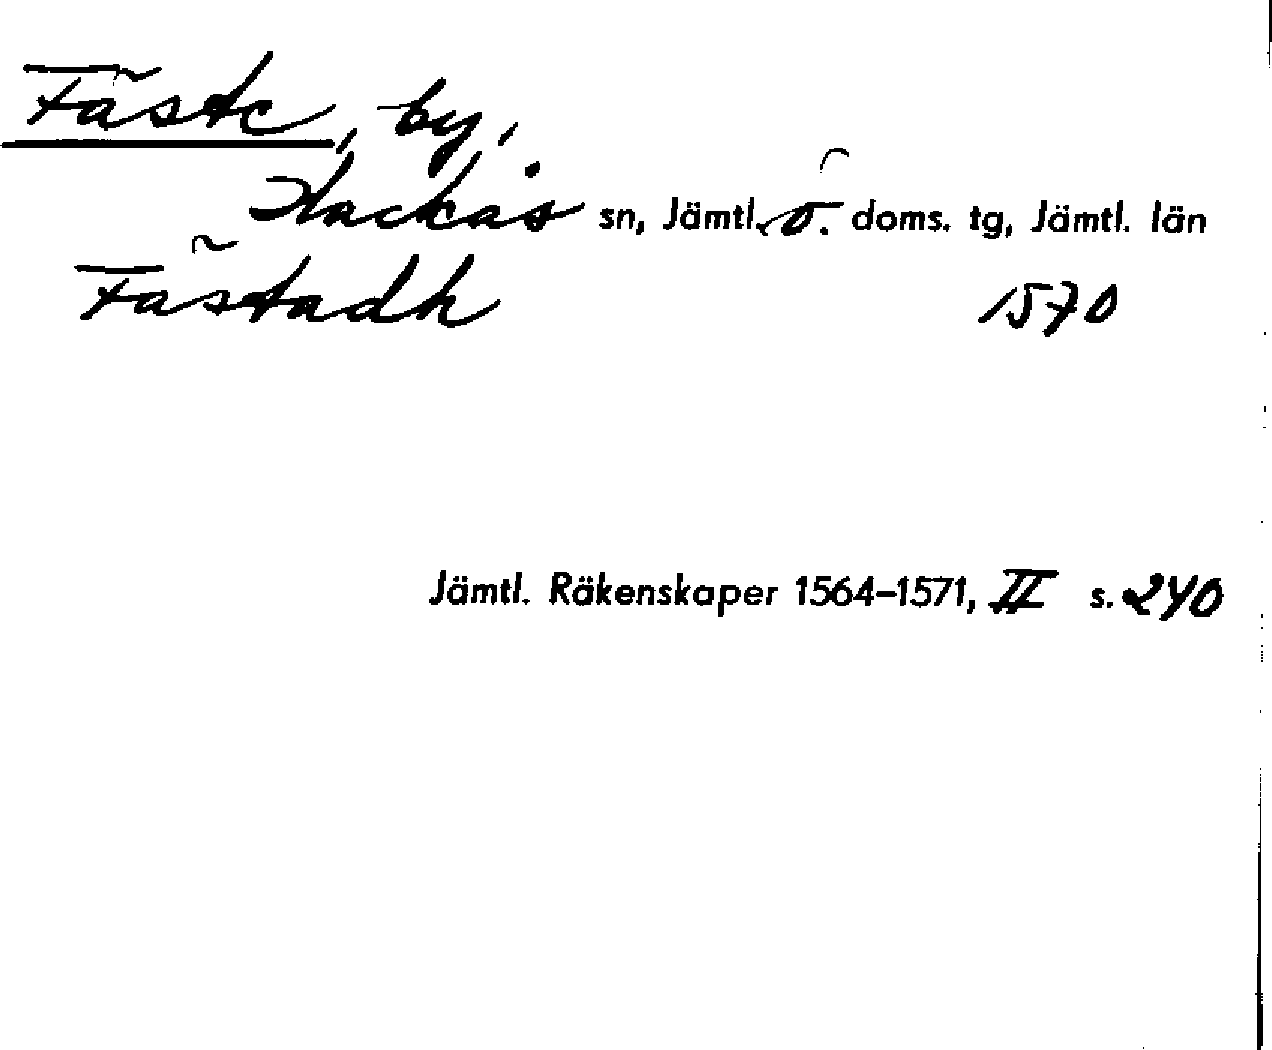 Fäste, by,
Hackås sn, Jämtl. ö. doms. tg, Jämtl. län
Fästadh 1570
Jämtl. Räkenskaper 1564-1571, II s. 240